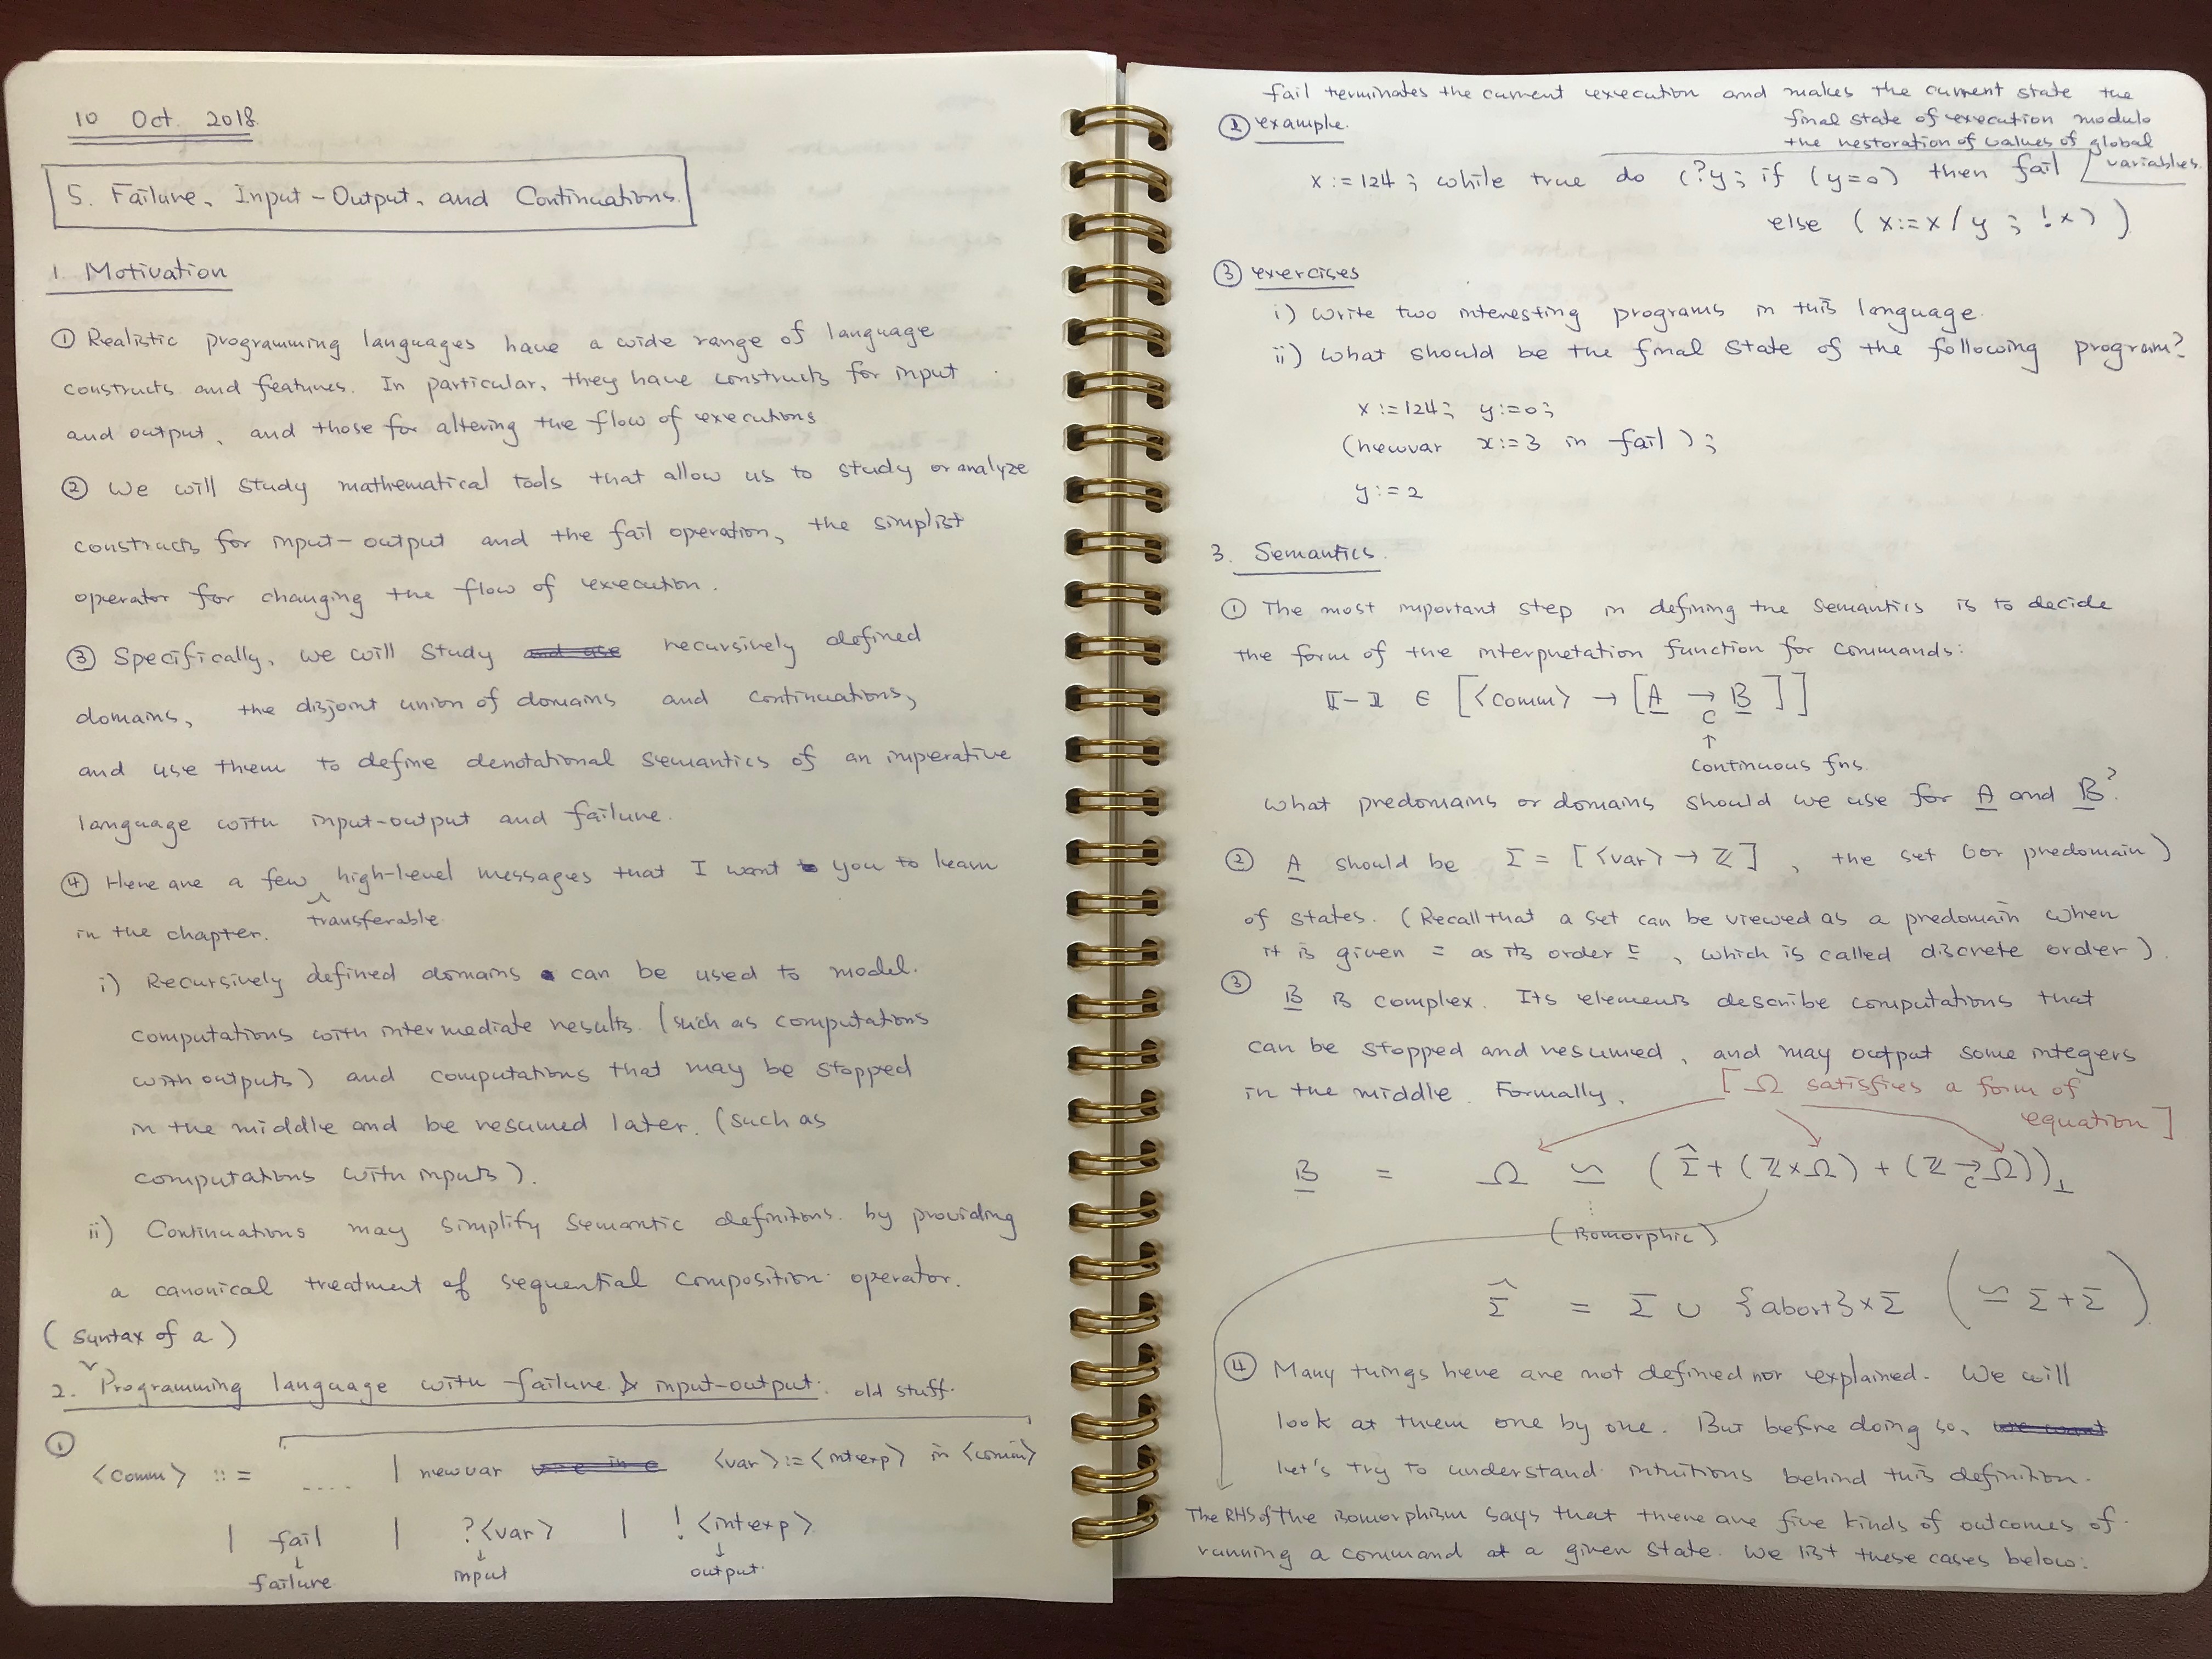 10 Oct. 2018.
5. Failure, Input-Output, and Continuations.
1. Motivation
① Realistic programming languages have a wide range of language
constructs and features. In particular, they have constructs for input
and output, and those for altering the flow of executions
② We will study mathematical tools that allow us to study or analyze
constructs for input-output and the fail operation, the simplist
operator for changing the flow of execution.
③ Specifically, we will study recursively defined
domains, the disjoint union of domains and continuations,
and use them to define denotational semantics of an imperative
language with input-output and failure.
④ Here are a few high-level messages that I want to you to learn
transferable
in the chapter.
i) Recursively defined domains can be used to model.
computations with intermediate results (such as computations
with outputs) and computations that may be stopped
in the middle and be resumed later. (such as
computations with inputs).
ii) Continuations may simplify semantic definitions. by providing
a canonical treatment of sequential composition operator.
(Syntax of a)
2. Programming language with failure & input-output. old stuff.
①
<comm> ::= .... | newvar <var>:=<intexp> in <comm>
| fail | ?<var> | !<intexp>
↓ ↓ ↓
failure input output.
fail terminates the current execution and makes the current state the
final state of execution modulo
the restoration of values of global
variables.
② example.
x:=124; while true do (?y; if (y=0) then fail
else (x:=x/y; !x))
③ exercises
i) Write two interesting programs in this language.
ii) What should be the final state of the following program?
x:=124; y:=0;
(newvar x:=3 in fail);
y:=2
3. Semantics.
① The most important step in defining the semantics is to decide
the form of the interpretation function for commands:
⟦-⟧ ∈ [<comm> → [A →c B]]
↑
continuous fns.
What predomains or domains should we use for A and B?
② A should be Σ = [<var> → ℤ], the set (or predomain)
of states. (Recall that a set can be viewed as a predomain when
it is given = as its order ⊑, which is called discrete order).
③ B is complex. Its elements describe computations that
can be stopped and resumed, and may output some integers
in the middle. Formally,
[Ω satisfies a form of
equation]
B = Ω ≃ (Σ̂ + (ℤ×Ω) + (ℤ →c Ω))⊥
(isomorphic)
Σ̂ = Σ ∪ {abort}×Σ (≃ Σ+Σ)
④ Many things here are not defined nor explained. We will
look at them one by one. But before doing so,
let's try to understand intuitions behind this definition.
The RHS of the isomorphism says that there are five kinds of outcomes of
running a command at a given state. We list these cases below: